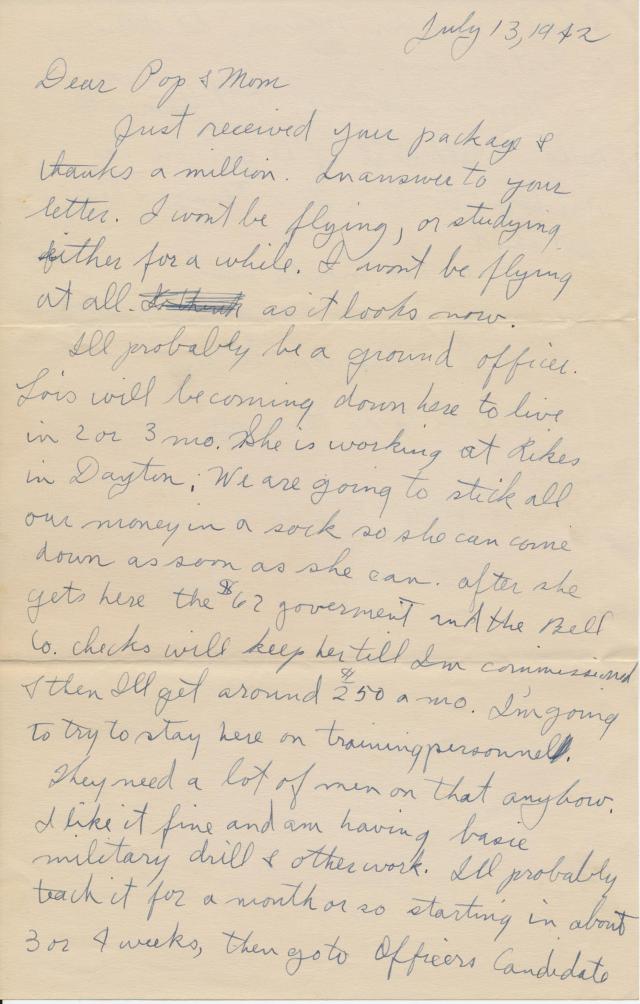 July 13, 1942
Dear Pop & Mom
Just received your package &
thanks a million. In answer to your
letter. I wont be flying, or studying
either for a while. I wont be flying
at all. as it looks now.
Ill probably be a ground officer.
Lois will be coming down here to live
in 2 or 3 mo. She is working at Rikes
in Dayton. We are going to stick all
our money in a sock so she can come
down as soon as she can. after she
gets here the $62 goverment and the Bell
Co. checks will keep her till Im commissioned
& then Ill get around $250 a mo. I'm going
to try to stay here on training personnel.
They need a lot of men on that anyhow.
I like it fine and am having basic
military drill & other work. Ill probably
teach it for a month or so starting in about
3 or 4 weeks, then go to Officers Candidate